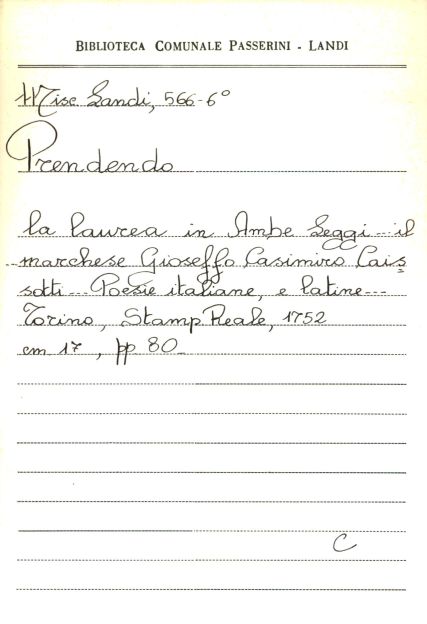 BIBLIOTECA COMUNALE PASSERINI - LANDI
Misc Landi, 566-6°
Prendendo
la laurea in Ambe Leggi ... il
marchese Gioseffo Casimiro Cais
sotti ... Poesie italiane, e latine ...
Torino, Stamp. Reale, 1752
cm 17, pp 80
C